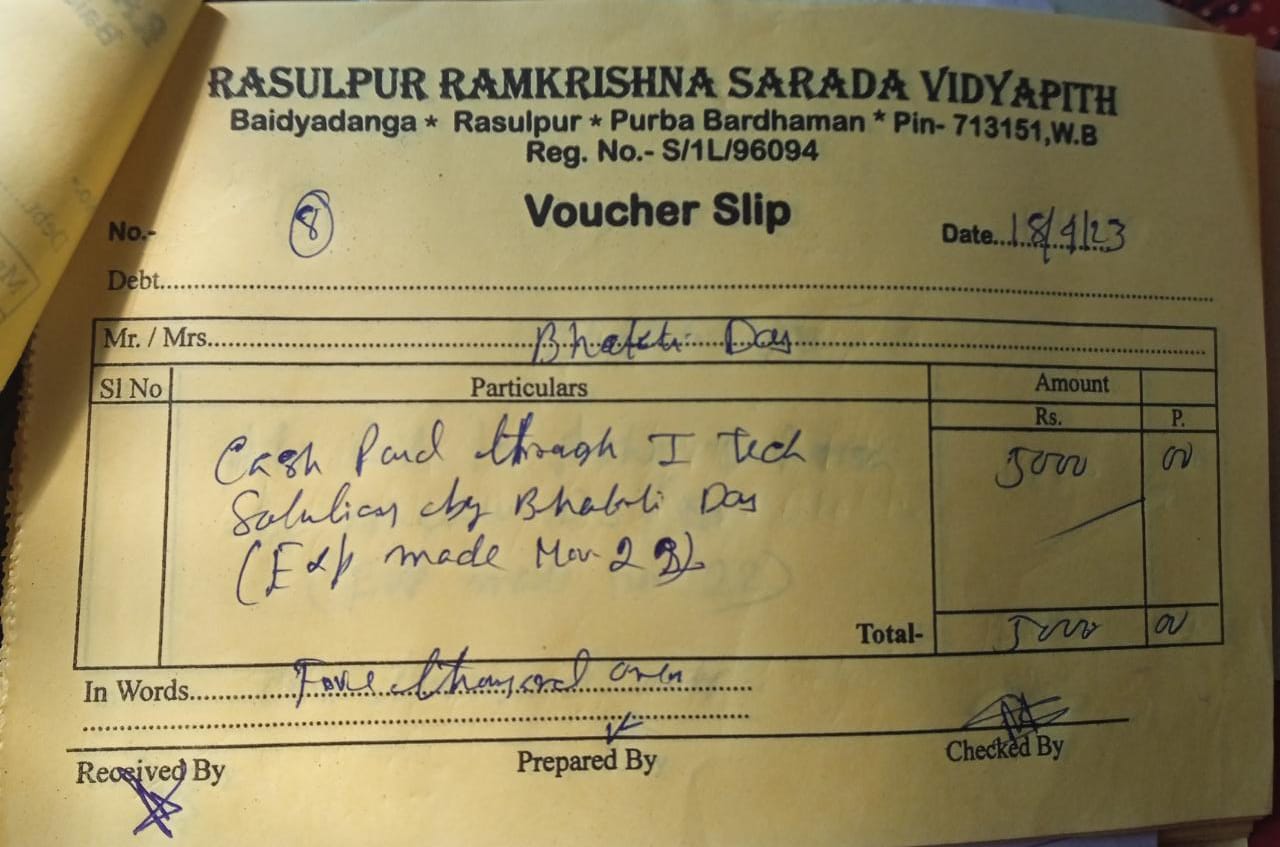 RASULPUR RAMKRISHNA SARADA VIDYAPITH
Baidyadanga * Rasulpur * Purba Bardhaman * Pin- 713151,W.B
Reg. No.- S/1L/96094
Voucher Slip
No.- 8 Date...18/4/23
Debt
Mr. / Mrs. Das
Sl No Particulars Amount
Rs. P.
Cash Paid through I Tech 5000 00
by Das
(Exp made
Total- 5000 00
In Words thousand only
Received By Prepared By Checked By